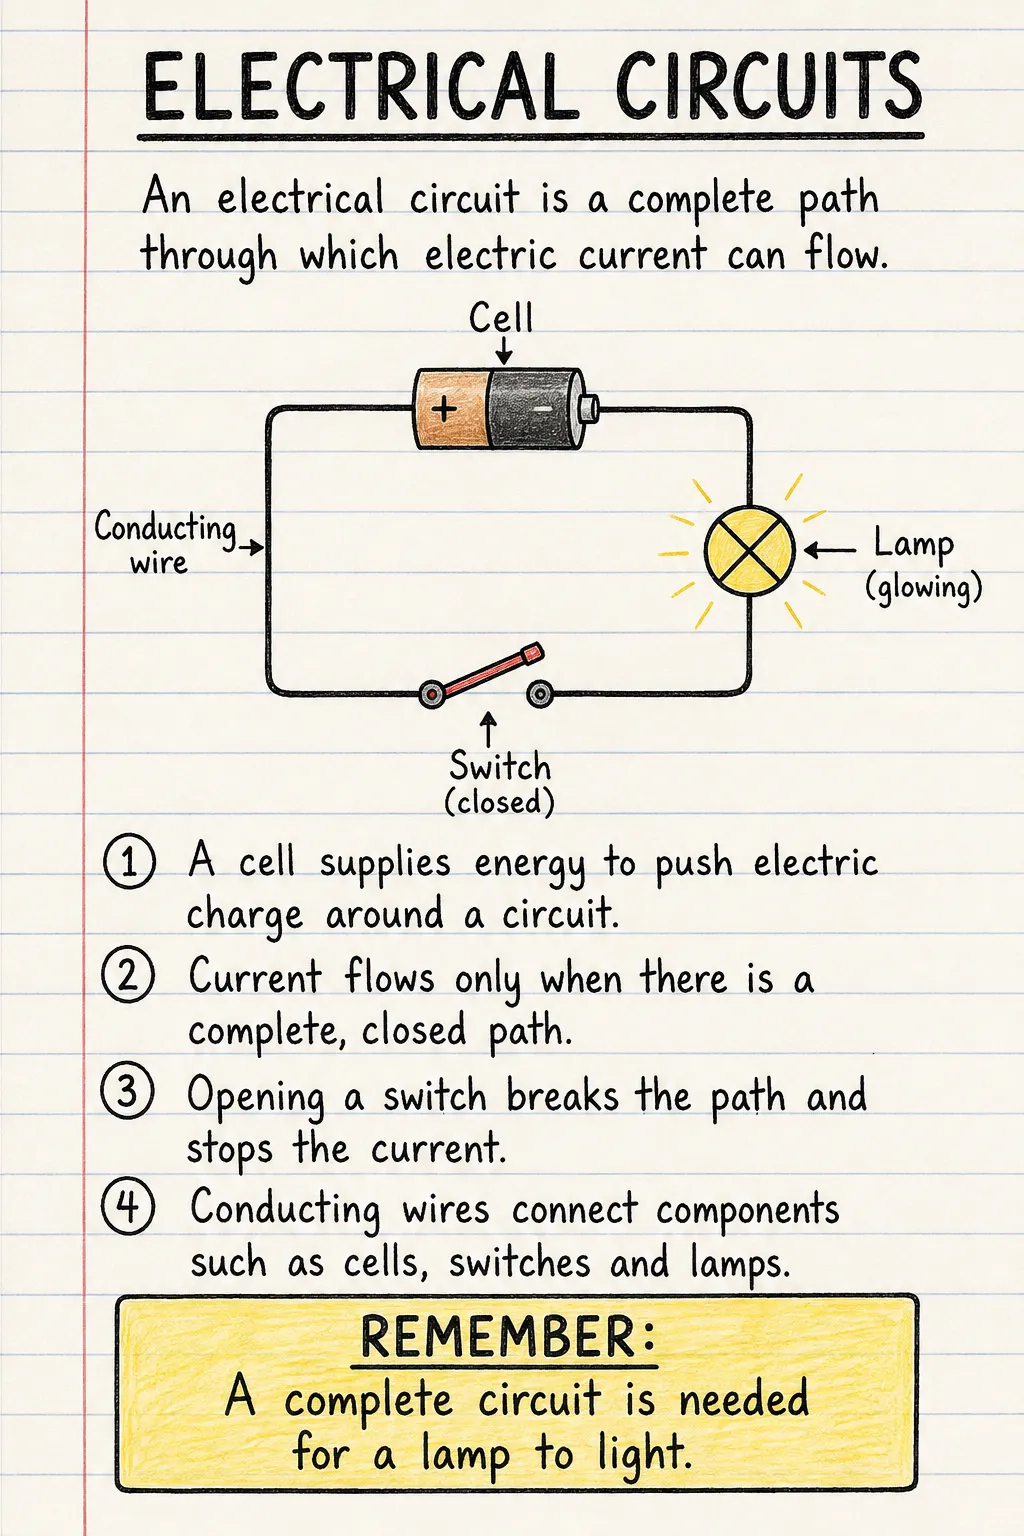 ELECTRICAL CIRCUITS
An electrical circuit is a complete path
through which electric current can flow.
Cell
+ -
Conducting
wire
Lamp
(glowing)
Switch
(closed)
1 A cell supplies energy to push electric
charge around a circuit.
2 Current flows only when there is a
complete, closed path.
3 Opening a switch breaks the path and
stops the current.
4 Conducting wires connect components
such as cells, switches and lamps.
REMEMBER:
A complete circuit is needed
for a lamp to light.